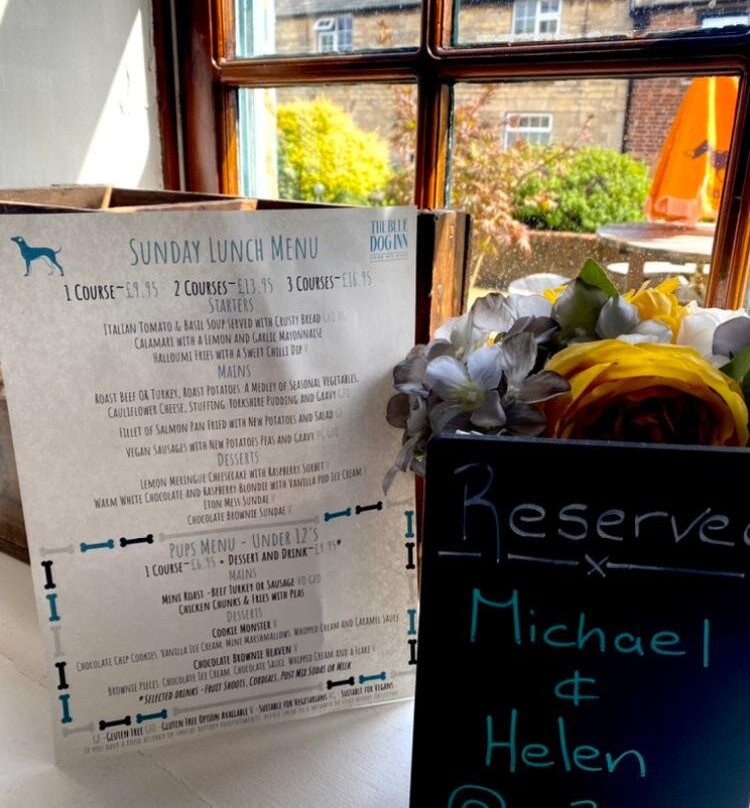 SUNDAY LUNCH MENU
THE BLUE
DOG INN
1 COURSE~£9.95 2 COURSES~£13.95 3 COURSES~£16.95
STARTERS
ITALIAN TOMATO & BASIL SOUP SERVED WITH CRUSTY BREAD
CALAMARI WITH A LEMON AND GARLIC MAYONNAISE
HALLOUMI FRIES WITH A SWEET CHILLI DIP V
MAINS
ROAST BEEF OR TURKEY, ROAST POTATOES, A MEDLEY OF SEASONAL VEGETABLES,
CAULIFLOWER CHEESE, STUFFING, YORKSHIRE PUDDING AND GRAVY GFO
FILLET OF SALMON PAN FRIED WITH NEW POTATOES AND SALAD GF
VEGAN SAUSAGES WITH NEW POTATOES PEAS AND GRAVY
DESSERTS
LEMON MERINGUE CHEESECAKE WITH RASPBERRY SORBET V
WARM WHITE CHOCOLATE AND RASPBERRY BLONDIE WITH VANILLA POD ICE CREAM V
ETON MESS SUNDAE V
CHOCOLATE BROWNIE SUNDAE V
PUPS MENU - UNDER 12'S
1 COURSE~£6.95 + DESSERT AND DRINK~£9.95*
MAINS
MINI ROAST -BEEF TURKEY OR SAUSAGE VO GFO
CHICKEN CHUNKS & FRIES WITH PEAS
DESSERTS
COOKIE MONSTER V
CHOCOLATE CHIP COOKIES, VANILLA ICE CREAM, MINI MARSHMALLOWS, WHIPPED CREAM AND CARAMEL SAUCE
CHOCOLATE BROWNIE HEAVEN V
BROWNIE PIECES, CHOCOLATE ICE CREAM, CHOCOLATE SAUCE, WHIPPED CREAM AND A FLAKE V
*SELECTED DRINKS -FRUIT SHOOTS, CORDIALS, POST MIX SODAS OR MILK
GF -GLUTEN FREE GFO -GLUTEN FREE OPTION AVAILABLE V -SUITABLE FOR VEGETARIANS VG -SUITABLE FOR VEGANS
Reserve
Michael
&
Helen